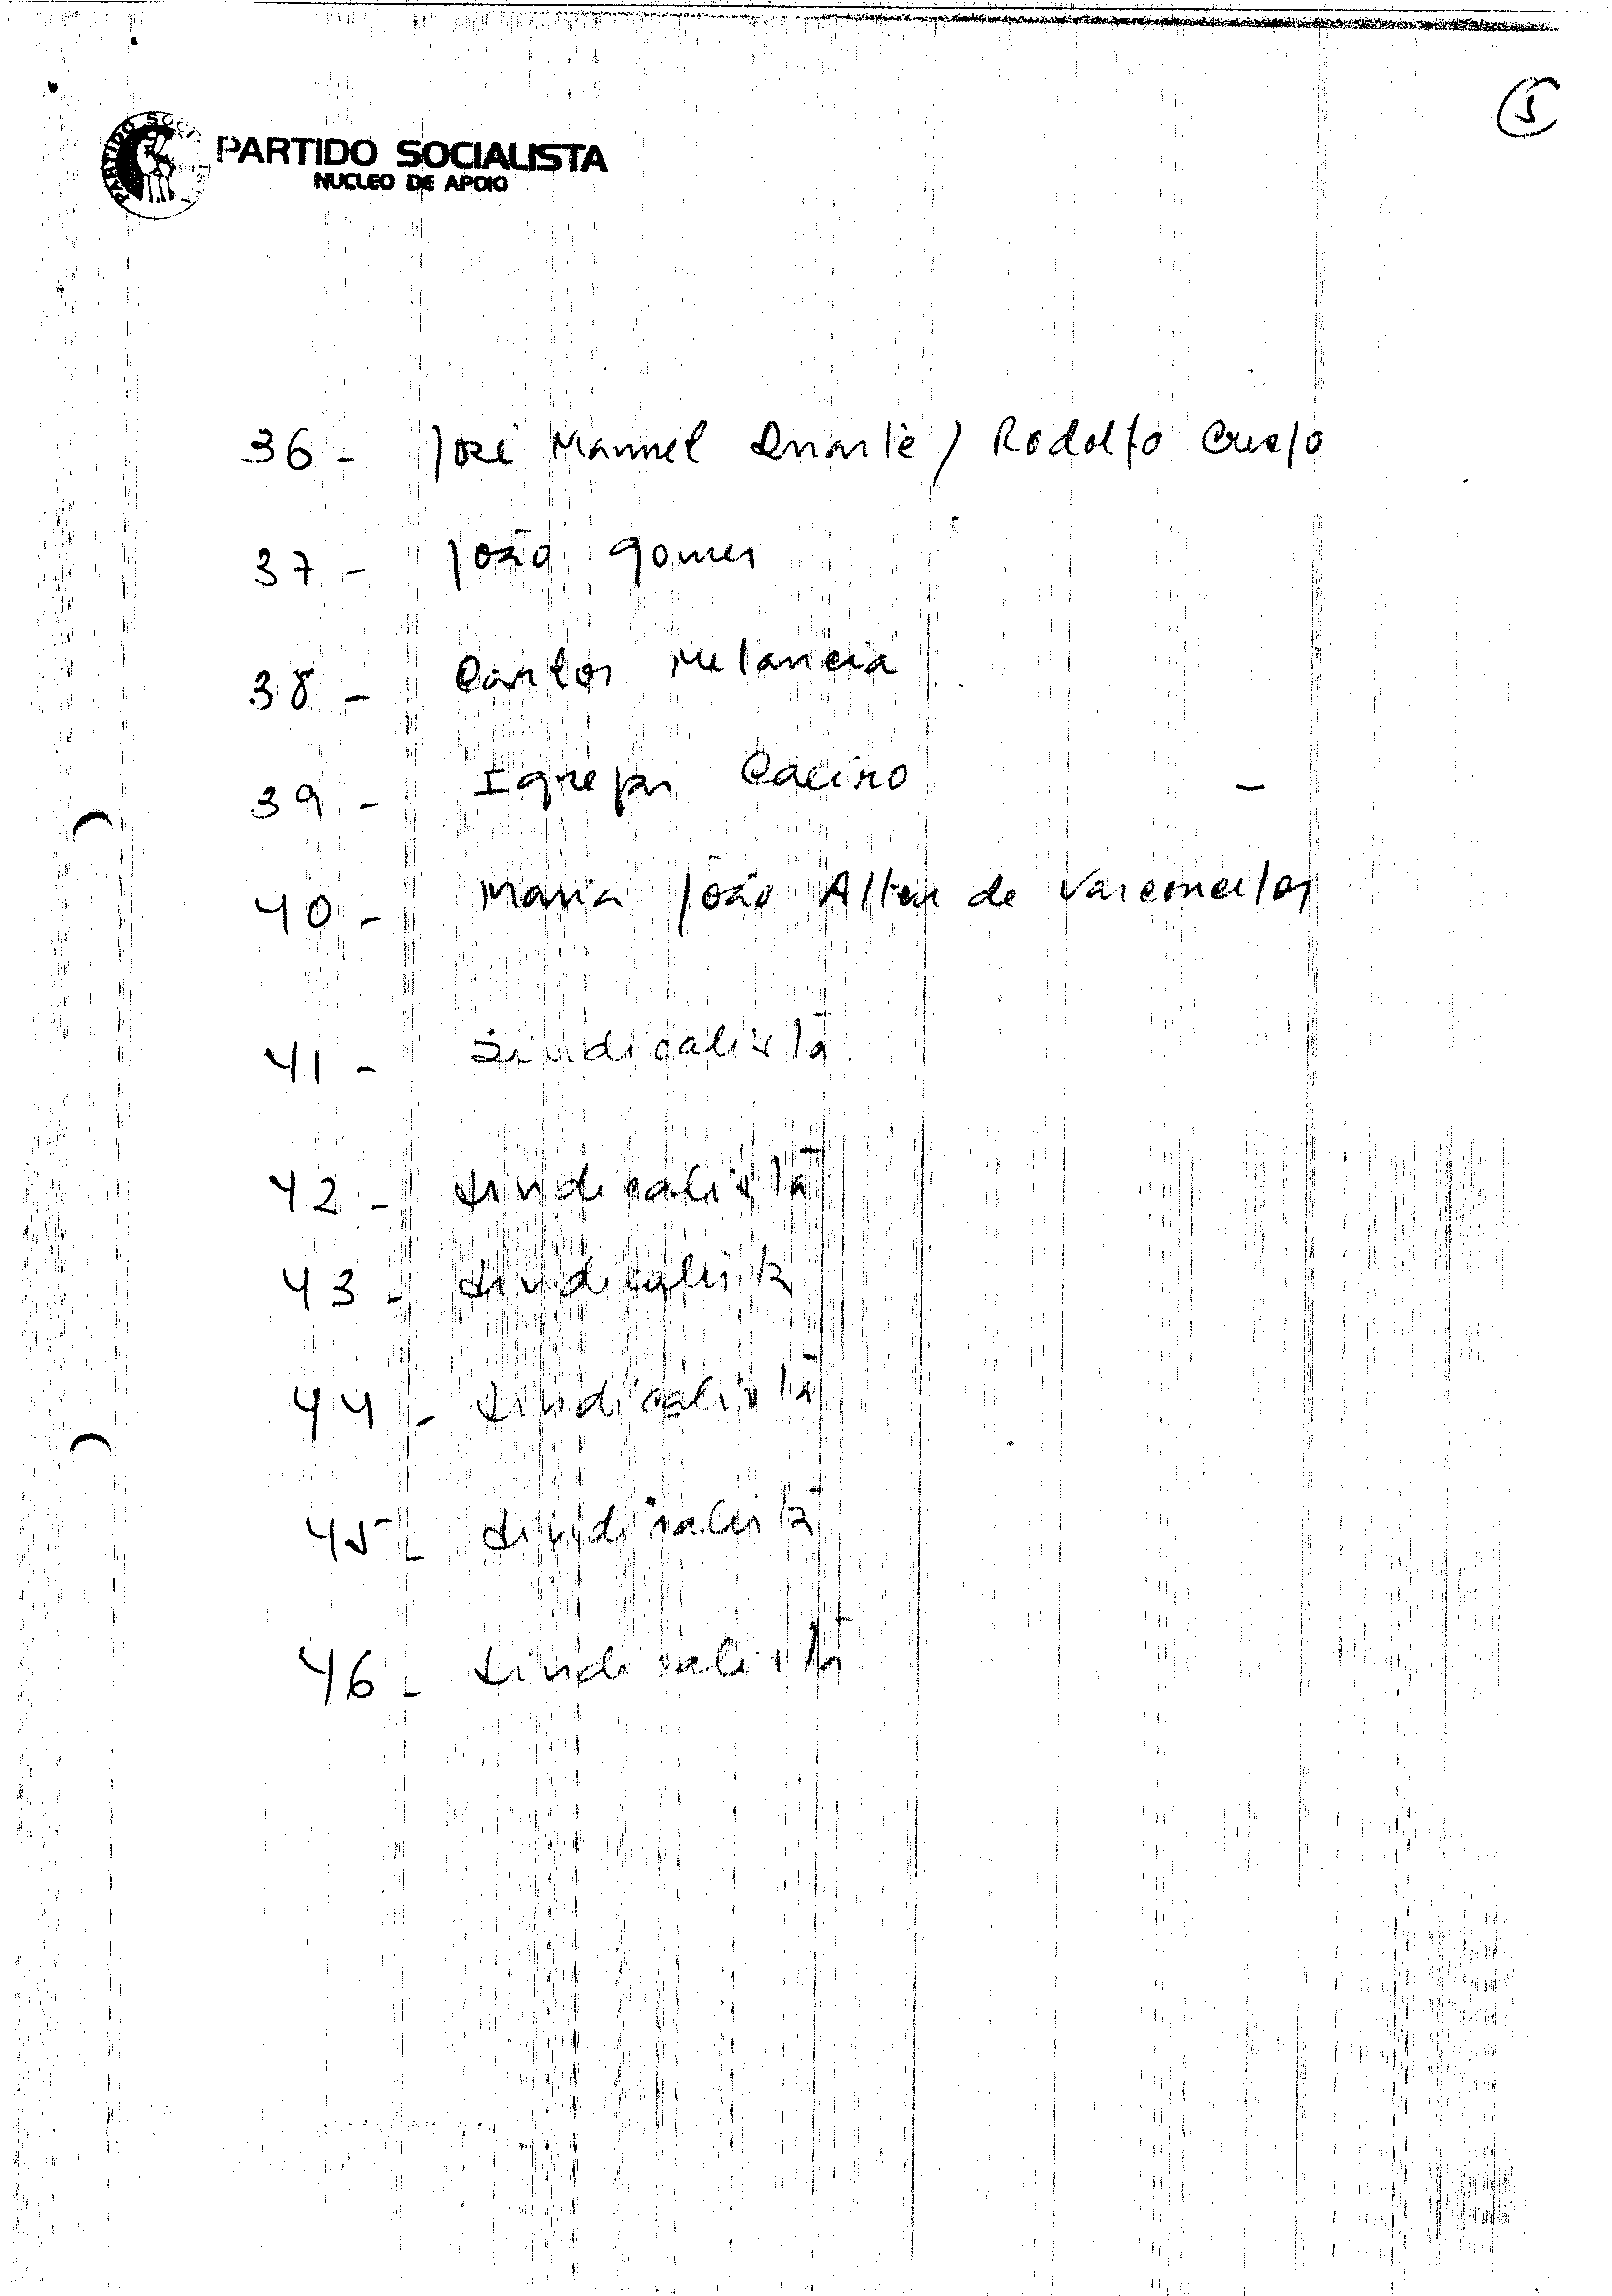 5
PARTIDO SOCIALISTA
NUCLEO DE APOIO
36 - José Manuel Duarte / Rodolfo Crespo
37 - João Gomes
38 - Carlos Melancia
39 - Igrejas Caeiro -
40 - Maria João de Vasconcelos
41 - Sindicalista
42 - Sindicalista
43 - Sindicalista
44 - Sindicalista
45 - Sindicalista
46 - Sindicalista